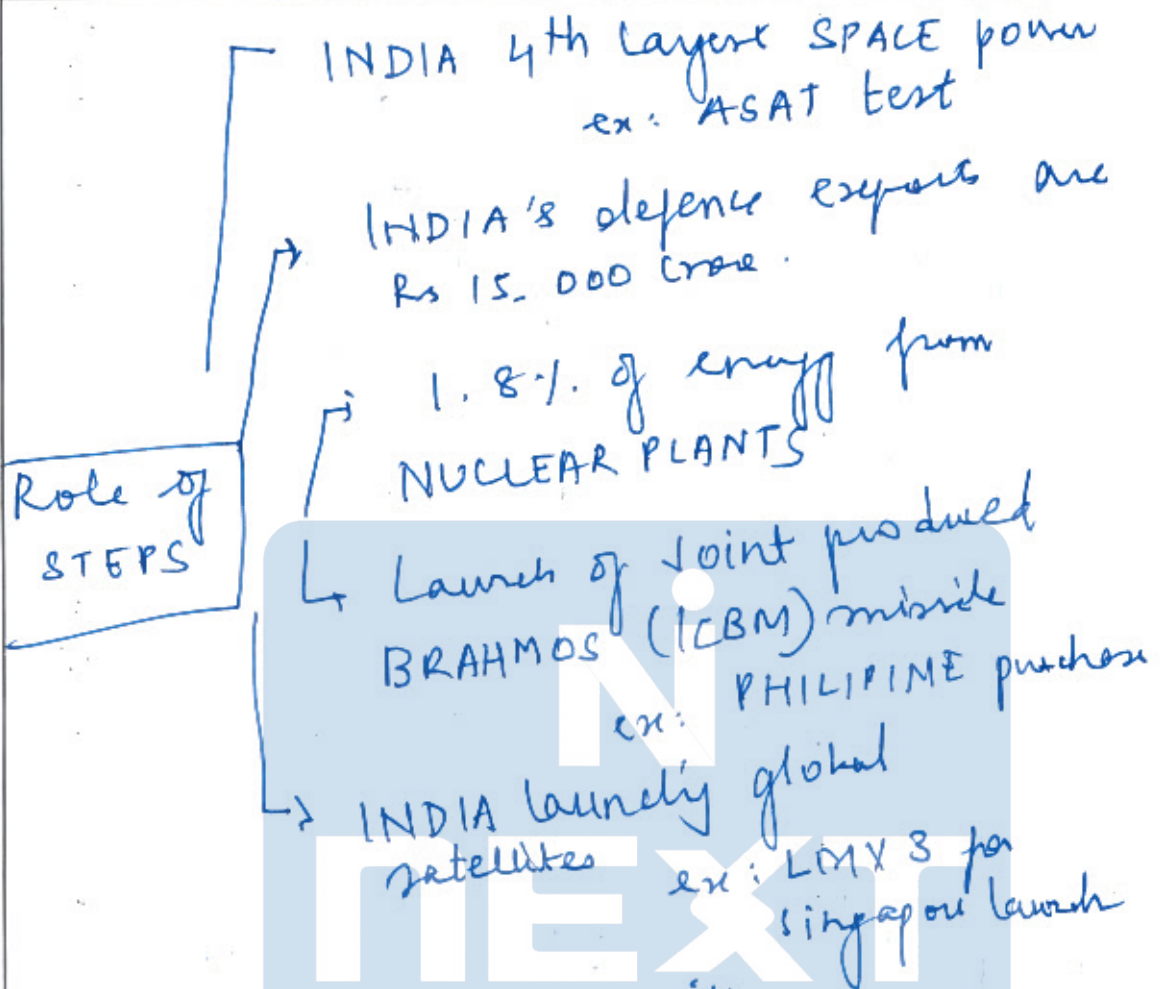 INDIA 4th Largest SPACE power
ex: ASAT test
INDIA's defence exports are
Rs 15,000 crore.
1.8% of energy from
NUCLEAR PLANTS
Role of
STEPS
Launch of Joint produced
BRAHMOS (ICBM) missile
ex: PHILIPINE purchase
INDIA launching global
satellites ex: LMV 3 for
Singapore launch
Ni
NEXT